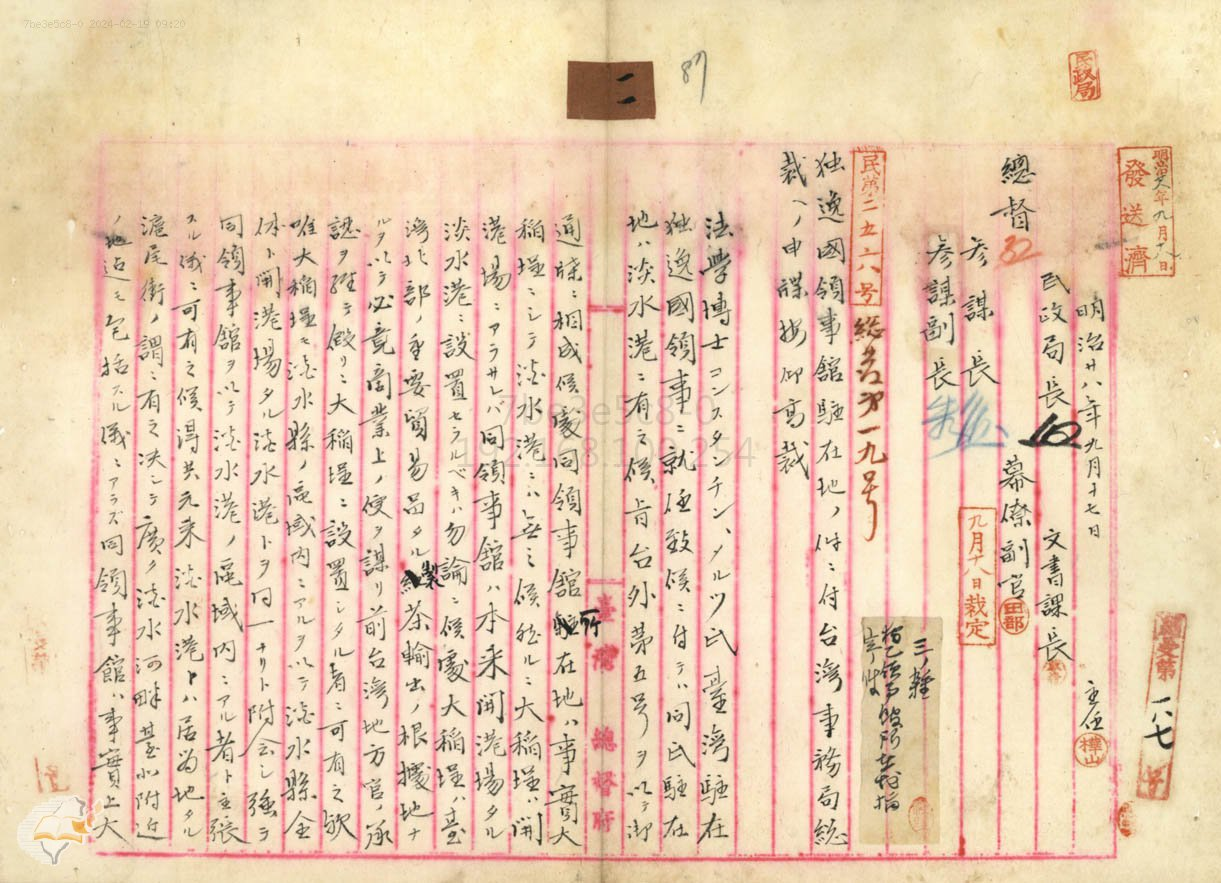 7be3e5c8-0 2024-02-19 09:20
二
87
民政局
明治廿八年九月十八日
發送濟
明治廿八年九月十七日
主任
樺山
民政局長
文書課長
總督
幕僚副官
田部
參謀長
九月十八日裁定
參謀副長
民第二五六八号
總差第一九号
三ノ雜
独逸國領事館駐在地ノ件ニ付台湾事務局総
裁ヘノ申牒按仰高裁
法學博士コンスタンチン、メルツ氏臺灣駐在
独逸國領事ニ就任致候ニ付テハ同氏駐在
地ハ淡水港ニ有之候旨台外第五号ヲ以テ御
通牒ニ相成候處同領事館所在地ハ事實大
稲埕ニシテ淡水港ニハ無之候然ルニ大稲埕ハ開
港場ニアラサレバ同領事館ハ本来開港場タル
淡水港ニ設置セラルベキハ勿論ニ候處大稲埕ハ臺
湾北部ノ重要貿易品タル製茶輸出ノ根據地ナ
ルヲ以テ必竟商業上ノ便ヲ謀リ前台湾地方官ノ承
認ヲ経テ假リニ大稲埕ニ設置シタル者ニ可有之欤
唯大稲埕モ淡水縣ノ區域内ニアルヲ以テ淡水縣全
体ト開港場タル淡水港トヲ同一ナリト附会シ強テ
同領事館ヲ以テ淡水港ノ區域内ニアル者ト主張
スル儀ニ可有之候得共元来淡水港トハ居留地タル
滬尾街ノ謂ニ有之决シテ廣ク淡水河畔臺北附近
ノ地迄モ包括スル儀ニアラズ同領事館ハ事實上大
臺灣總督府
一八七
7be3e5c8-0
192.168.109.254